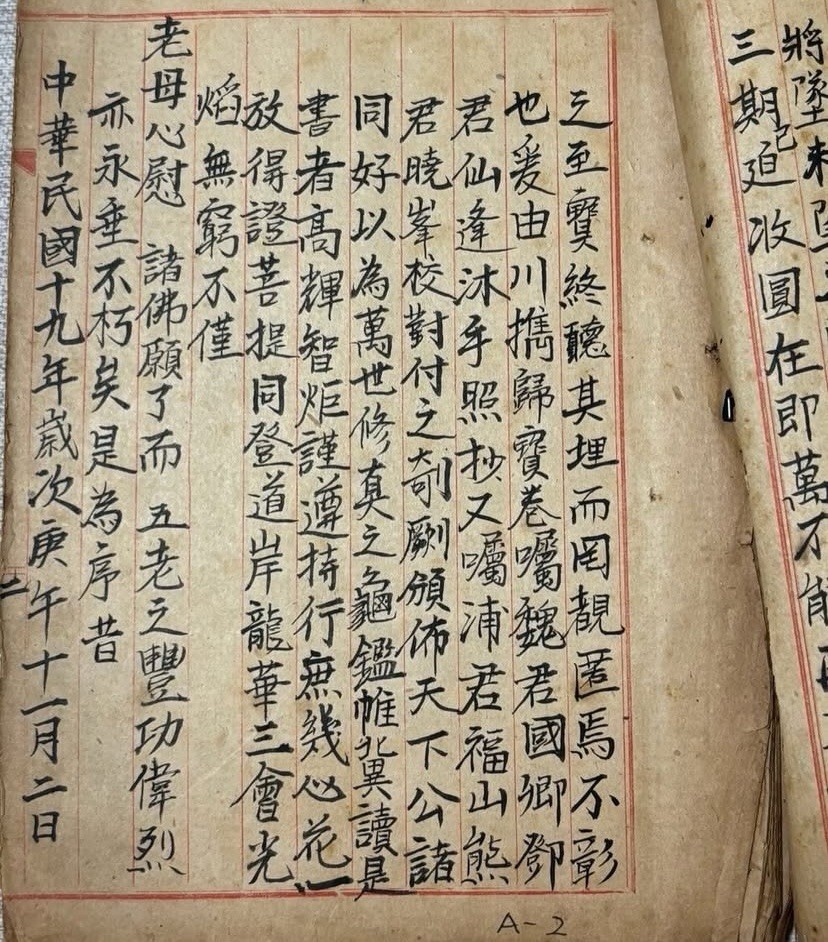 將墜未墜
三期已迫收圓在即萬不能再
之至寶終聽其埋而罔覩匿焉不彰
也爰由川携歸寶卷囑魏君國卿鄧
君仙逢沐手照抄又囑浦君福山熊
君曉峯校對付之剞劂頒佈天下公諸
同好以為萬世修真之龜鑑惟兾讀是
書者高輝智炬謹遵持行庶幾心花一
放得證菩提同登道岸龍華三會光
熖無窮不僅
老母心慰 諸佛願了而 五老之豐功偉烈
亦永垂不朽矣是為序昔
中華民國十九年歲次庚午十一月二日
二
A-2